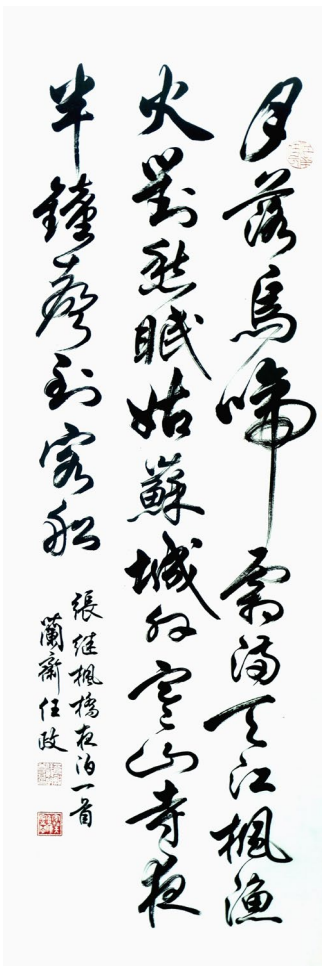 月落烏啼霜滿天江楓漁
火對愁眠姑蘇城外寒山寺夜
半鐘聲到客船
張继楓橋夜泊一首
蘭齋任政